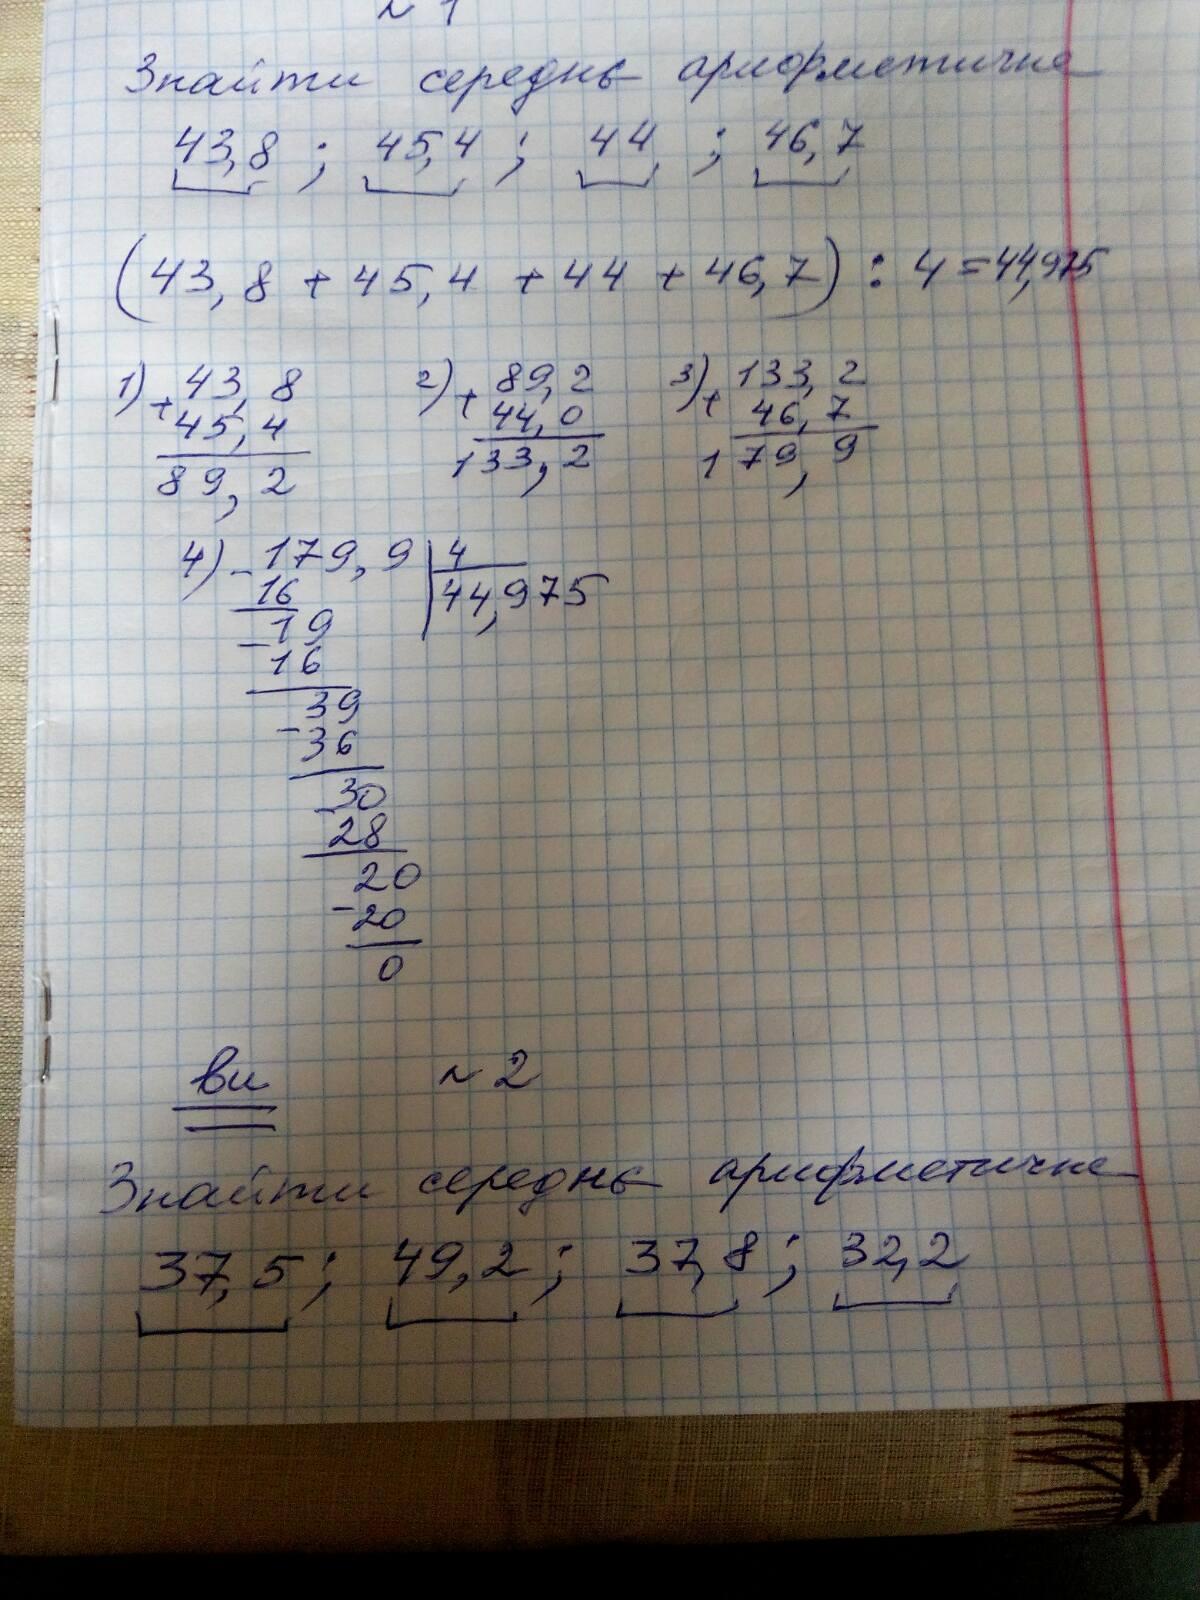 № 1
Знайти середнє арифметичне
43,8 ; 45,4 ; 44 ; 46,7
(43,8 + 45,4 + 44 + 46,7) : 4 = 44,975
1) + 43,8 2) + 89,2 3) + 133,2
45,4 44,0 46,7
89,2 133,2 179,9
4) - 179,9 | 4
16 44,975
- 19
16
39
- 36
- 30
28
20
- 20
0
ви № 2
Знайти середнє арифметичне
37,5 ; 49,2 ; 37,8 ; 32,2